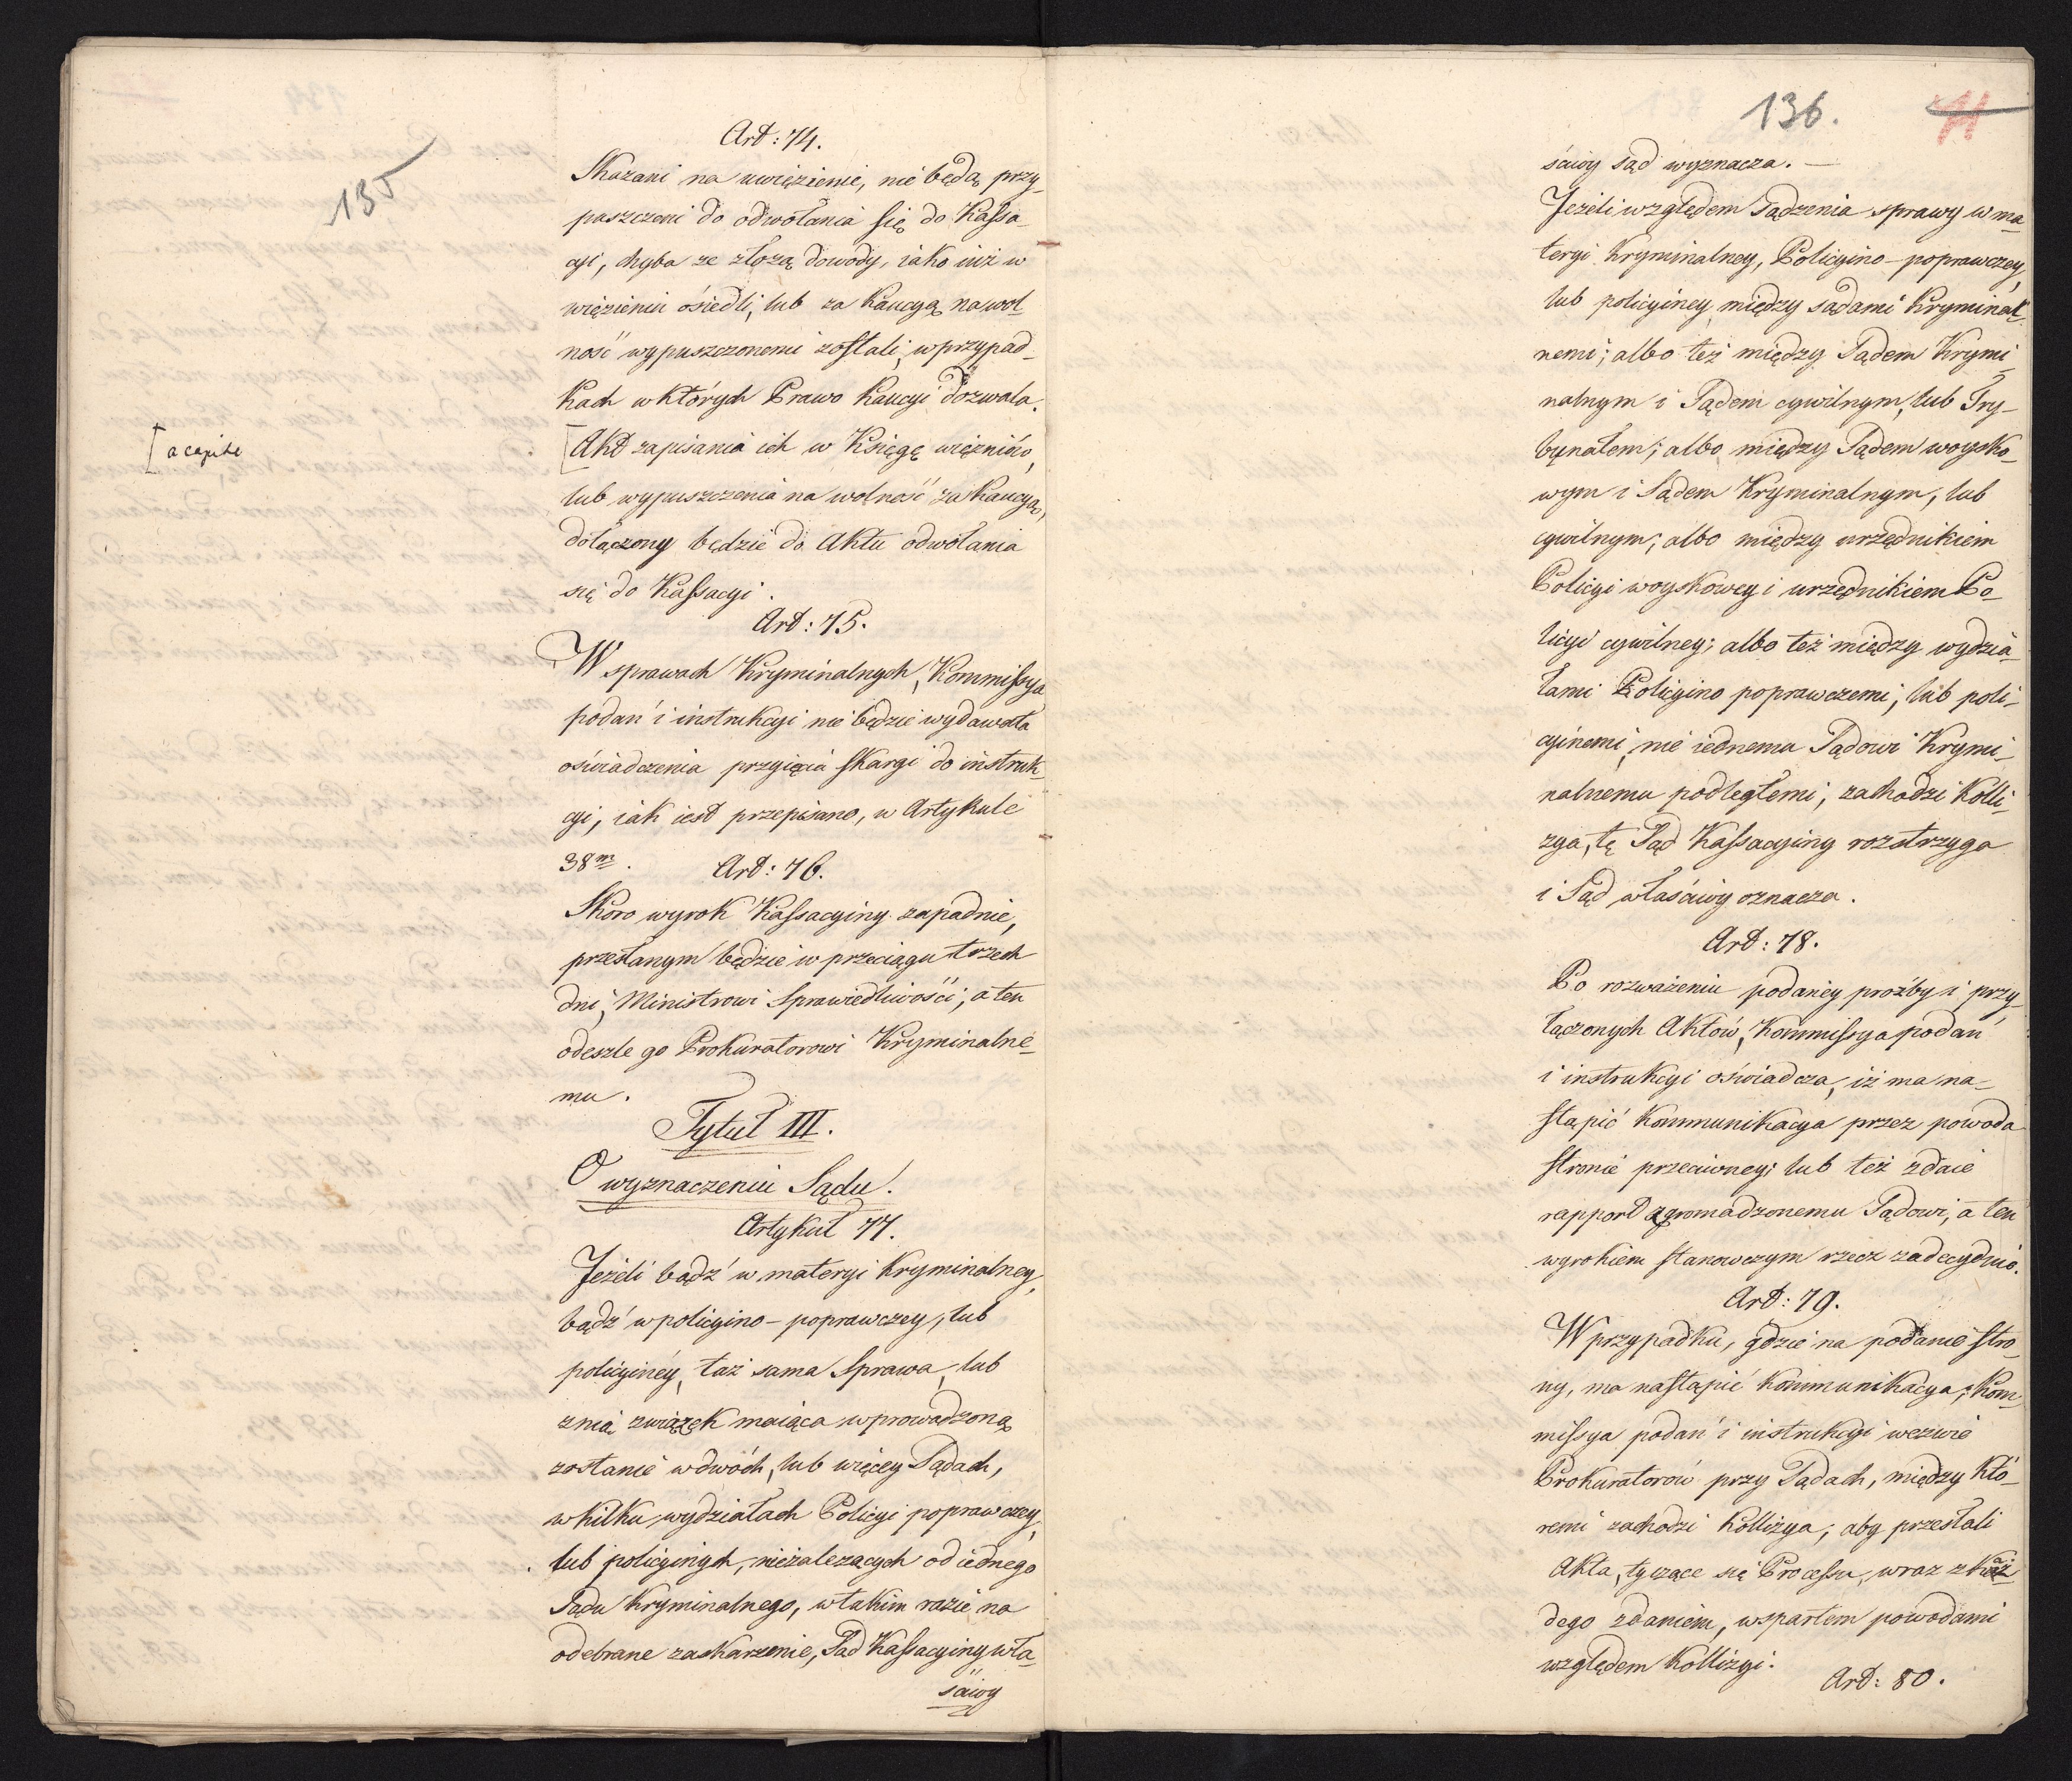 135
Art: 74.
Skazani na uwięzienie, nie będą przy-
puszczeni do odwołania się do Kassa-
cyi, chyba ze złożą dowody, iako iuż w
więzieniu osiedli, lub za Kaucyą na wol-
ność wypuszczonemi zostali, w przypad-
kach w których Prawo Kaucyi dozwala.
[a capite
[Akt zapisania ich w Księgę więźniów,
lub wypuszczenia na wolność za Kaucyą,
dołączony będzie do Aktu odwołania
się do Kassacyi.
Art: 75.
W sprawach Kryminalnych, Kommissya
podań i instrukcyi nie będzie wydawała
oświadczenia przyięcia skargi do instruk-
cyi, iak iest przepisano, w Artykule
38m.
Art: 76.
Skoro wyrok Kassacyiny zapadnie,
przesłanym będzie w przeciągu trzech
dni, Ministrowi Sprawiedliwości, a ten
odeszle go Prokuratorowi Kryminalne-
mu.
Tytuł III.
O wyznaczeniu Sądu.
Artykuł 77.
Jeżeli bądź w materyi Kryminalney,
bądź w policyino-poprawczey, lub
policyiney, taż sama Sprawa, lub
znią związek maiąca wprowadzoną
zostanie w dwóch, lub więcey Sądach,
w kilku wydziałach Policyi poprawczey,
lub policyinych, niezależących od iednego
Sądu Kryminalnego, w takim razie na
odebrane zaskarzenie, Sąd Kassacyiny wła-
ściwy
136.
71
ściwy Sąd wyznacza. —
Jeżeli względem Sądzenia sprawy w ma-
teryi Kryminalney, Policyino-poprawczey,
lub policyiney, między sądami Kryminal-
nemi; albo też między Sądem Krymi-
nalnym i Sądem cywilnym, lub Try-
bynałem; albo między Sądem woysko-
wym i Sądem Kryminalnym, lub
cywilnym; albo między urzędnikiem
Policyi woyskowey i urzędnikiem Po-
licyi cywilney; albo też między wydzia-
łami Policyino poprawczemi, lub poli-
cyinemi, nie iednemu Sądowi Krymi-
nalnemu podległemi, zachodzi Kolli-
zya, tę Sąd Kassacyiny rozstrzyga
i Sąd właściwy oznacza.
Art: 78.
Po rozważeniu podaney prożby i przy-
łączonych Aktów, Kommissya podań
i instrukcyi oświadcza, iż ma na-
stąpić Kommunikacya przez powoda
stronie przeciwney; lub też zdaie
rapport zgromadzonemu Sądowi, a ten
wyrokiem stanowczym rzecz zadecyduie.
Art: 79.
W przypadku, gdzie na podanie stro-
ny, ma nastąpić Kommunikacya; Kom-
missya podań i instrukcyi wezwie
Prokuratorów przy Sądach, między któ-
remi zachodzi Kollizya, aby przesłali
Akta, tyczące się Processu, wraz z każ-
dego zdaniem, wspartem powodami
względem Kollizyi.
Art: 80.